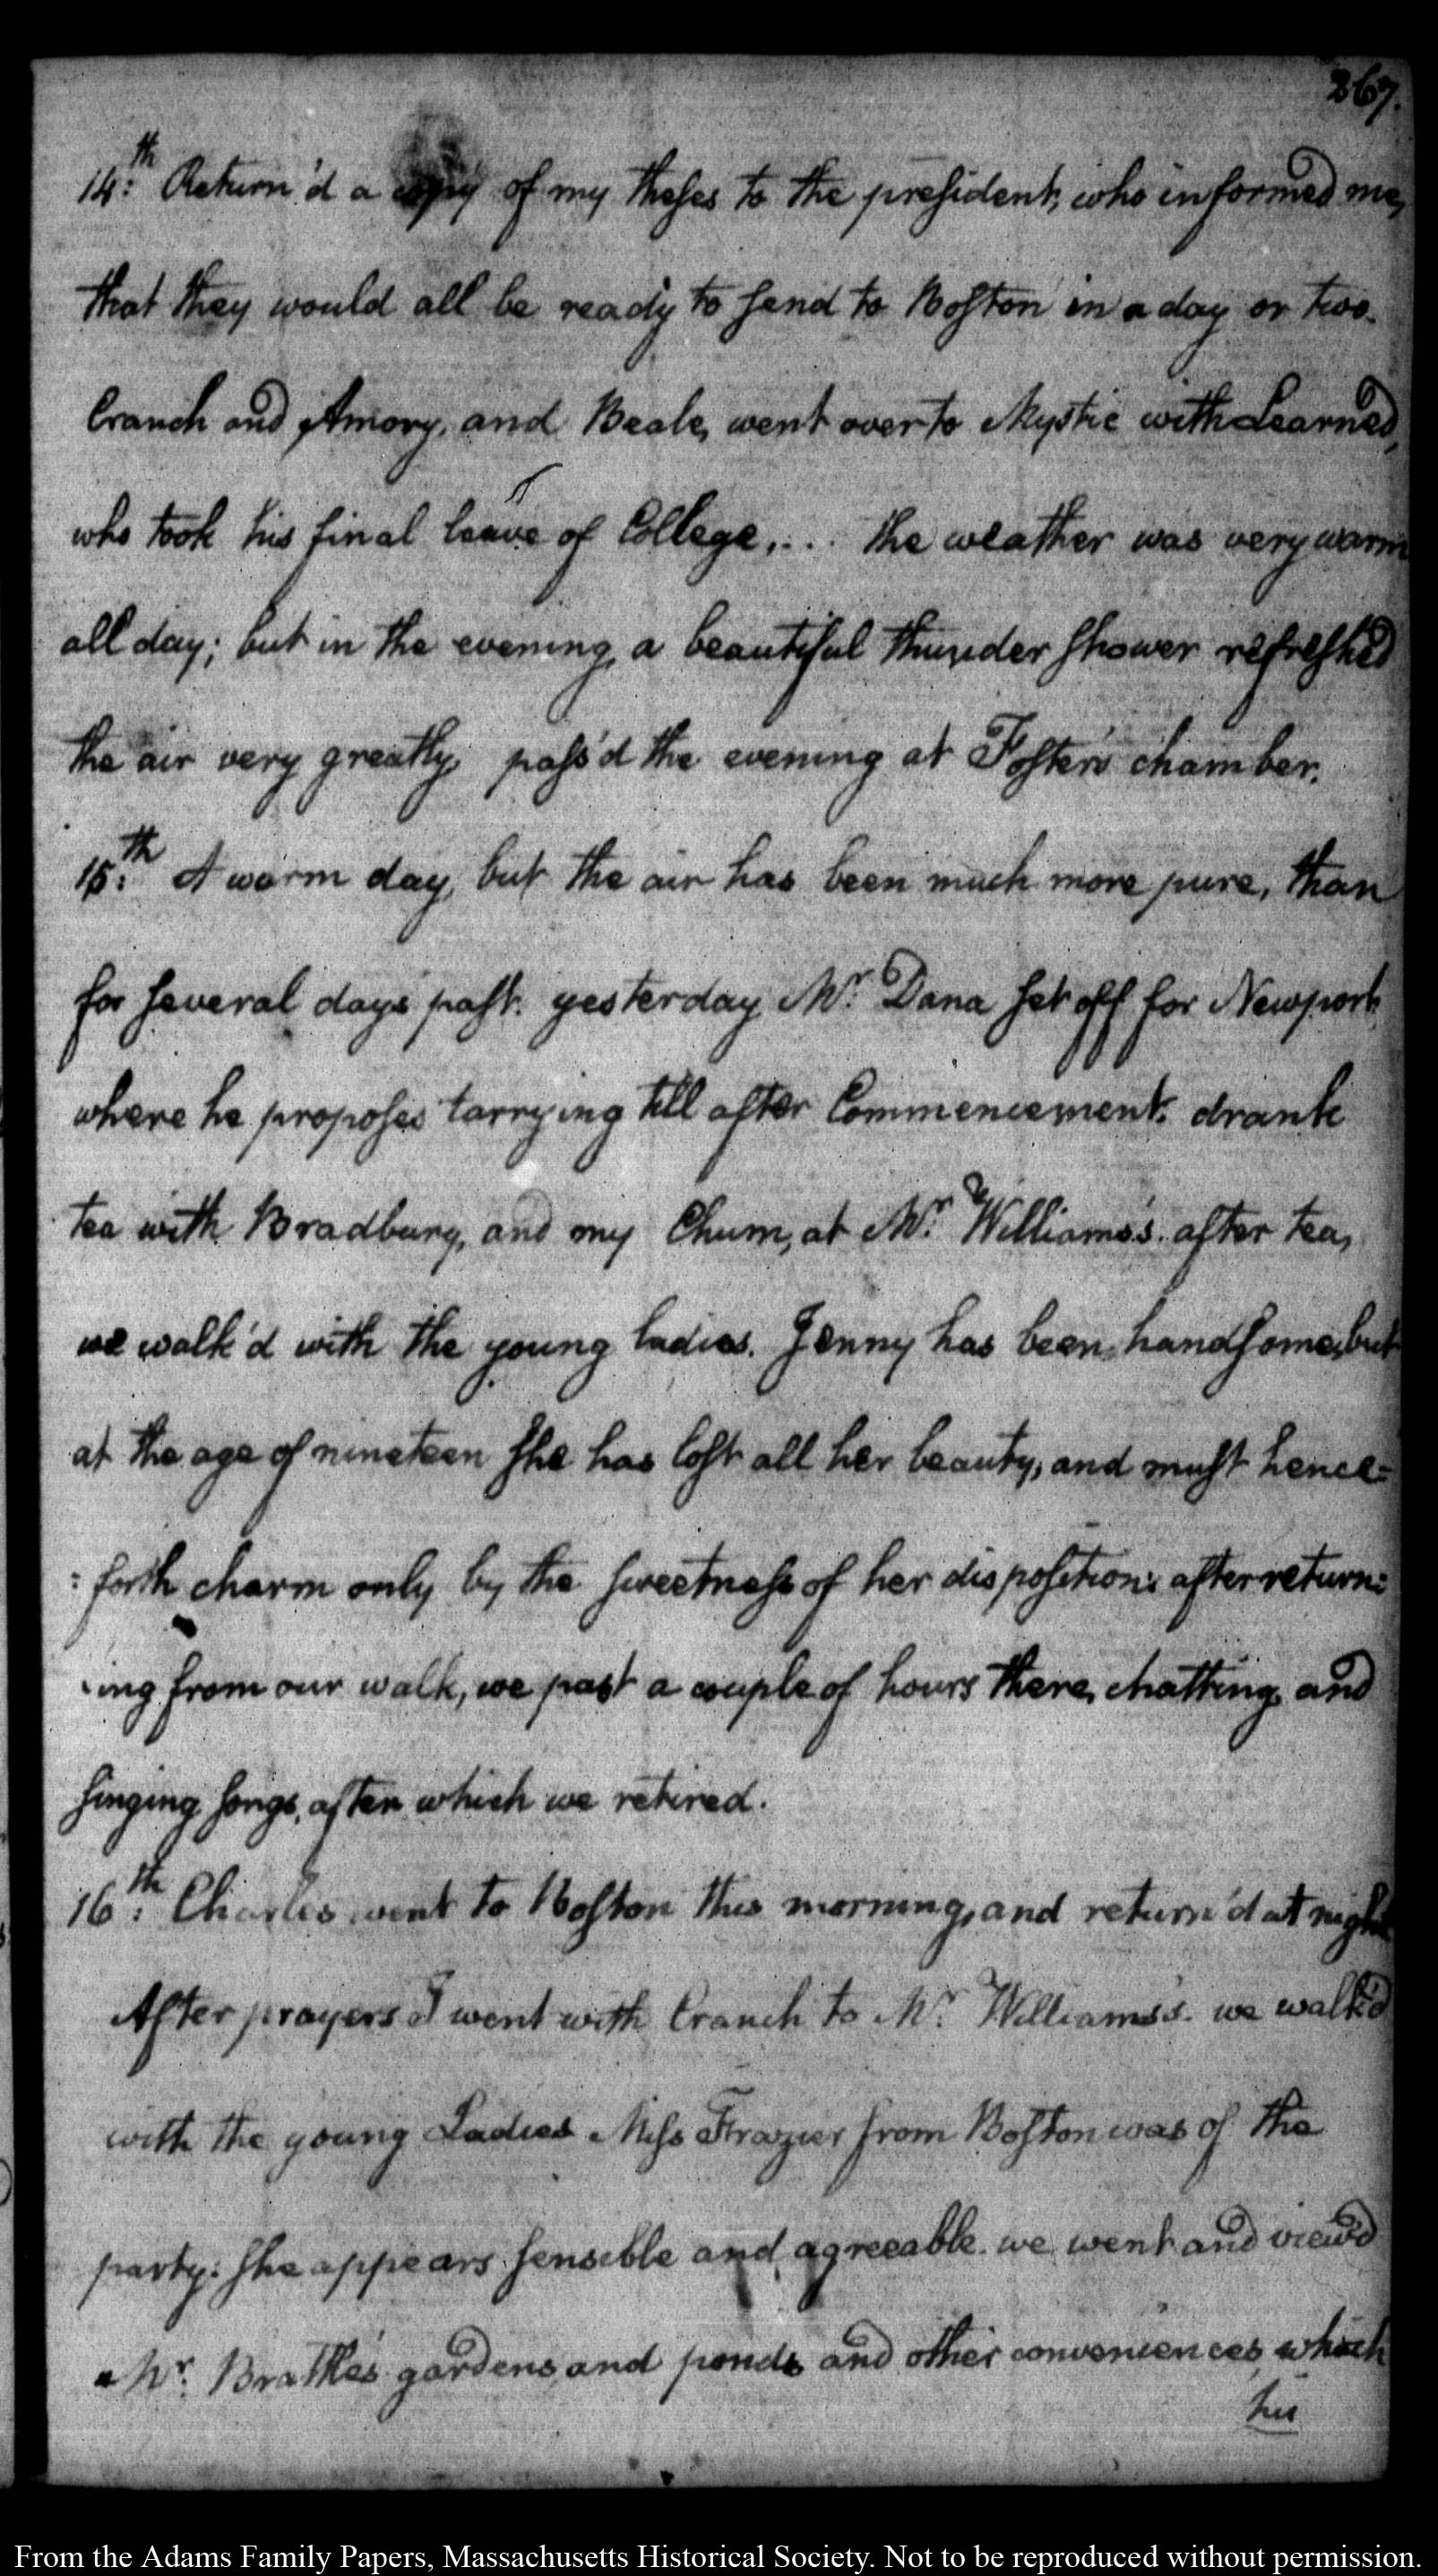 267.
14:th Return'd a copy of my theses to the president, who informed me,
that they would all be ready to send to Boston in a day or two.
Cranch and Amory, and Beale, went over to Mystic with Learned,
who took his final leave of College,... the weather was very warm
all day; but in the evening, a beautiful thunder shower refreshed
the air very greatly, pass'd the evening at Foster's chamber.
15:th A warm day, but the air has been much more pure, than
for several days past. yesterday Mr. Dana set off for Newport,
where he proposes tarrying till after Commencement. drank
tea with Bradbury, and my Chum, at Mr. Williams's. after tea,
we walk'd with the young ladies. Jenny has been handsome, but
at the age of nineteen she has lost all her beauty, and must hence=
=forth charm only by the sweetness of her disposition: after return=
=ing from our walk, we past a couple of hours there, chatting, and
singing songs, after which we retired.
16:th Charles went to Boston this morning, and return'd at night
After prayers I went with Cranch to Mr. Williams's. we walk'd
with the young Ladies Miss Frazier from Boston was of the
party: she appears sensible and agreeable. we went and view'd
Mr. Brattle's gardens, and ponds and other conveniences, which
his
From the Adams Family Papers, Massachusetts Historical Society. Not to be reproduced without permission.